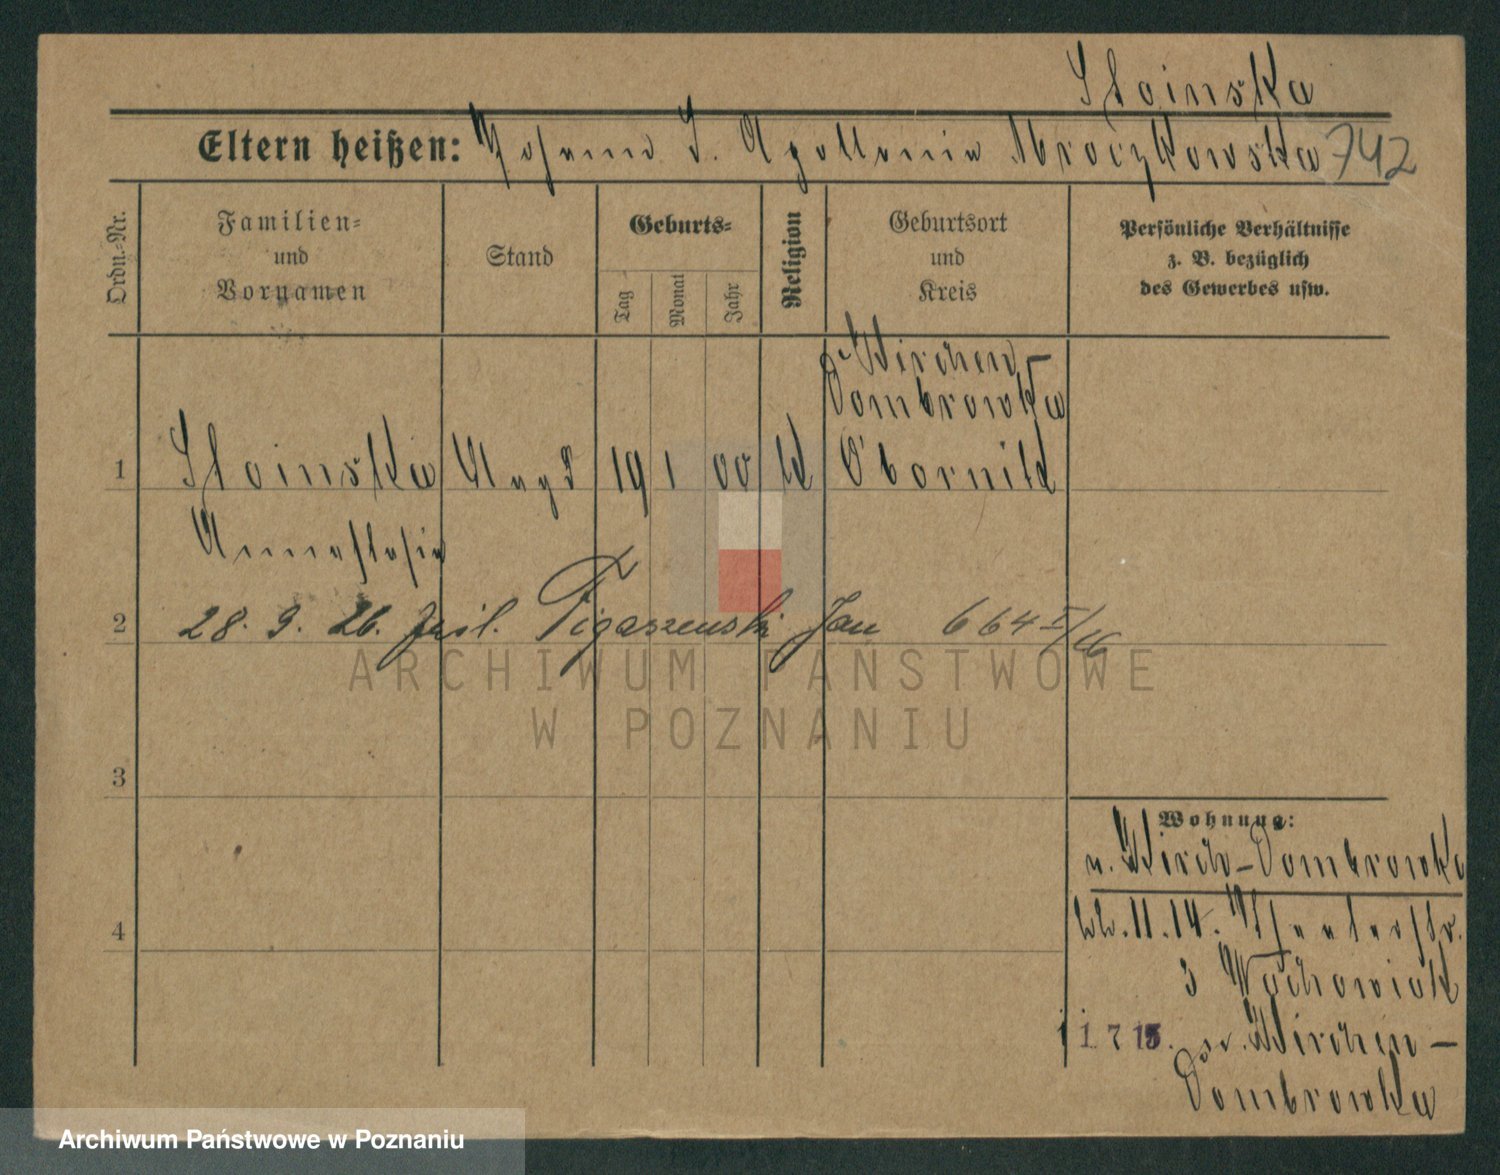 Sloinska
Eltern heißen: Johann S. Apollonia Mroczkowska 742
Ordn.-Nr.
Familien-
und
Vornamen
Stand
Geburts-
Tag
Monat
Jahr
Religion
Geburtsort
und
Kreis
Persönliche Verhältnisse
z. B. bezüglich
des Gewerbes usw.
Kirchen-
Dombrowka
1 Sloinska Magd 19 1 00 K Obornik
Annastasia
2 28. 9. 26. Figaszewski Jan 664
ARCHIWUM PAŃSTWOWE
W POZNANIU
3
Wohnung:
v. Kirch-Dombrowka
4
11. 14.
3 Wachowiak
1 7 15. Kirchen-
Dombrowka
Archiwum Państwowe w Poznaniu